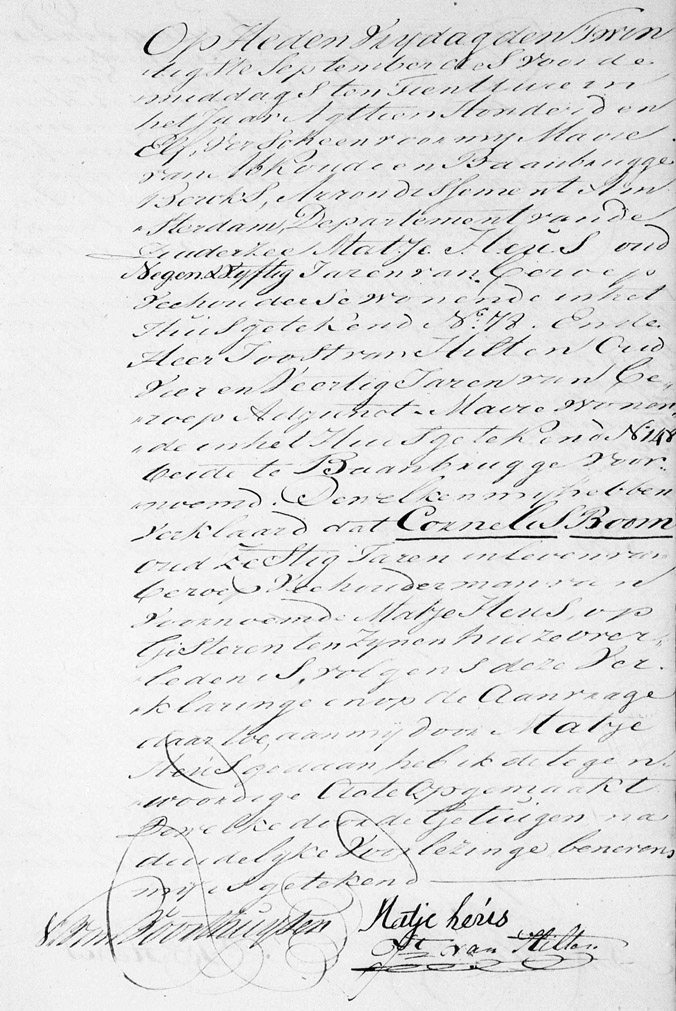 Op Heden Vrydag den Twin
tigste September des voor de
middags ten Tien Uure in
het Jaar Agttien Honderd en
Elf, Verscheen voor my Maire
van Abkoude en Baanbrugge
Arrondissement Am
sterdam, Departement van de
Zuiderzee Matje Heus oud
Negen & Vyftig Jaren van Beroep
Veehouderse wonende in het
Huis getekend No. 78. En de
Heer Joost van Hilten Oud
Vier en Veertig Jaren van Be
roep Adjunct-Maire wonen
de in het Huis getekend No 148
beide te Baanbrugge Voor
noemd. Dewelken my hebben
verklaard dat Cornelis Room
oud Zestig Jaren in leven van
beroep Veehouder man van
voornoemde Matje Heus, op
Gisteren ten zynen huize over
leden is, volgens deze Ver
klaringe en op de Aanvrage
daar toe, aan mij door Matje
Heus gedaan, heb ik de tegen
woordige Acte Opgemaakt
Dewelke door de Getuigen na
duidelyke Voorlezinge benevens
my is getekend
Matje heus
van Hilten